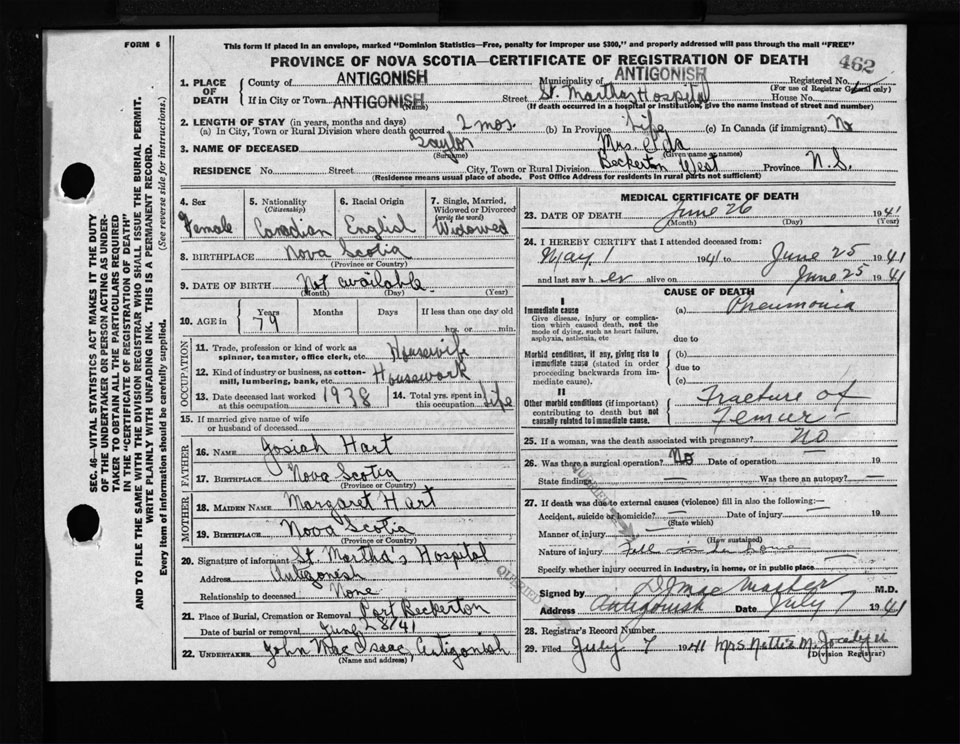 FORM 6
This form if placed in an envelope, marked "Dominion Statistics—Free, penalty for improper use $300," and properly addressed will pass through the mail "FREE"
PROVINCE OF NOVA SCOTIA—CERTIFICATE OF REGISTRATION OF DEATH
462
1. PLACE OF DEATH { County of ANTIGONISH Municipality of ANTIGONISH Registered No.
(For use of Registrar General only)
If in City or Town ANTIGONISH (Name) Street St. Marthas Hospital House No.
(If death occurred in a hospital or institution, give the name instead of street and number)
2. LENGTH OF STAY (in years, months and days)
(a) In City, Town or Rural Division where death occurred 2 mos. (b) In Province Life (c) In Canada (if immigrant) No
3. NAME OF DECEASED Taylor (Surname) Mrs. Ida (Given name or names)
RESIDENCE No. Street City, Town or Rural Division Beckerton West Province N.S.
(Residence means usual place of abode. Post Office Address for residents in rural parts not sufficient)
SEC. 46—VITAL STATISTICS ACT MAKES IT THE DUTY
OF THE UNDERTAKER OR PERSON ACTING AS UNDER-
TAKER TO OBTAIN ALL THE PARTICULARS REQUIRED
IN THE "CERTIFICATE OF REGISTRATION OF DEATH"
AND TO FILE THE SAME WITH THE DIVISION REGISTRAR WHO SHALL ISSUE THE BURIAL PERMIT.
WRITE PLAINLY WITH UNFADING INK. THIS IS A PERMANENT RECORD.
Every item of information should be carefully supplied. (See reverse side for instructions.)
4. Sex Female
5. Nationality (Citizenship) Canadian
6. Racial Origin English
7. Single, Married, Widowed or Divorced (write the word) Widowed
8. BIRTHPLACE Nova Scotia
(Province or Country)
9. DATE OF BIRTH Not available.
(Month) (Day) (Year)
10. AGE in { Years 79 Months Days If less than one day old
hrs. or min.
OCCUPATION
11. Trade, profession or kind of work as spinner, teamster, office clerk, etc. Housewife
12. Kind of industry or business, as cotton-mill, lumbering, bank, etc. Housework
13. Date deceased last worked at this occupation 1938 14. Total yrs. spent in this occupation Life
15. If married give name of wife or husband of deceased
FATHER
16. NAME Josiah Hart
17. BIRTHPLACE Nova Scotia
(Province or Country)
MOTHER
18. MAIDEN NAME Margaret Hart
19. BIRTHPLACE Nova Scotia
(Province or Country)
20. Signature of informant St. Martha's Hospital
Address Antigonish
Relationship to deceased None
21. Place of Burial, Cremation or Removal Port Beckerton
Date of burial or removal June 28/41
22. UNDERTAKER John Mac Isaac Antigonish
(Name and address)
MEDICAL CERTIFICATE OF DEATH
23. DATE OF DEATH June 26 1941
(Month) (Day) (Year)
24. I HEREBY CERTIFY that I attended deceased from:
May 1 1941 to June 25 1941
and last saw h er alive on June 25 1941
CAUSE OF DEATH
I
Immediate cause
Give disease, injury or complication which caused death, not the mode of dying, such as heart failure, asphyxia, asthenia, etc
(a) Pneumonia
due to
Morbid conditions, if any, giving rise to immediate cause (stated in order proceeding backwards from immediate cause).
(b)
due to
(c)
II
Other morbid conditions (if important) contributing to death but not causally related to immediate cause.
Fracture of
Femur -
25. If a woman, was the death associated with pregnancy? NO
26. Was there a surgical operation? No Date of operation 19
State findings — Was there an autopsy? —
27. If death was due to external causes (violence) fill in also the following:—
Accident, suicide or homicide? Date of injury 19
(State which)
Manner of injury (How sustained)
Nature of injury Fell in her home
Specify whether injury occurred in industry, in home, or in public place
QUERIED
QUERIED
Signed by M.D.
Address Antigonish Date July 7 1941
28. Registrar's Record Number
29. Filed July 7 1941 Mrs Nettie M.
(Division Registrar)